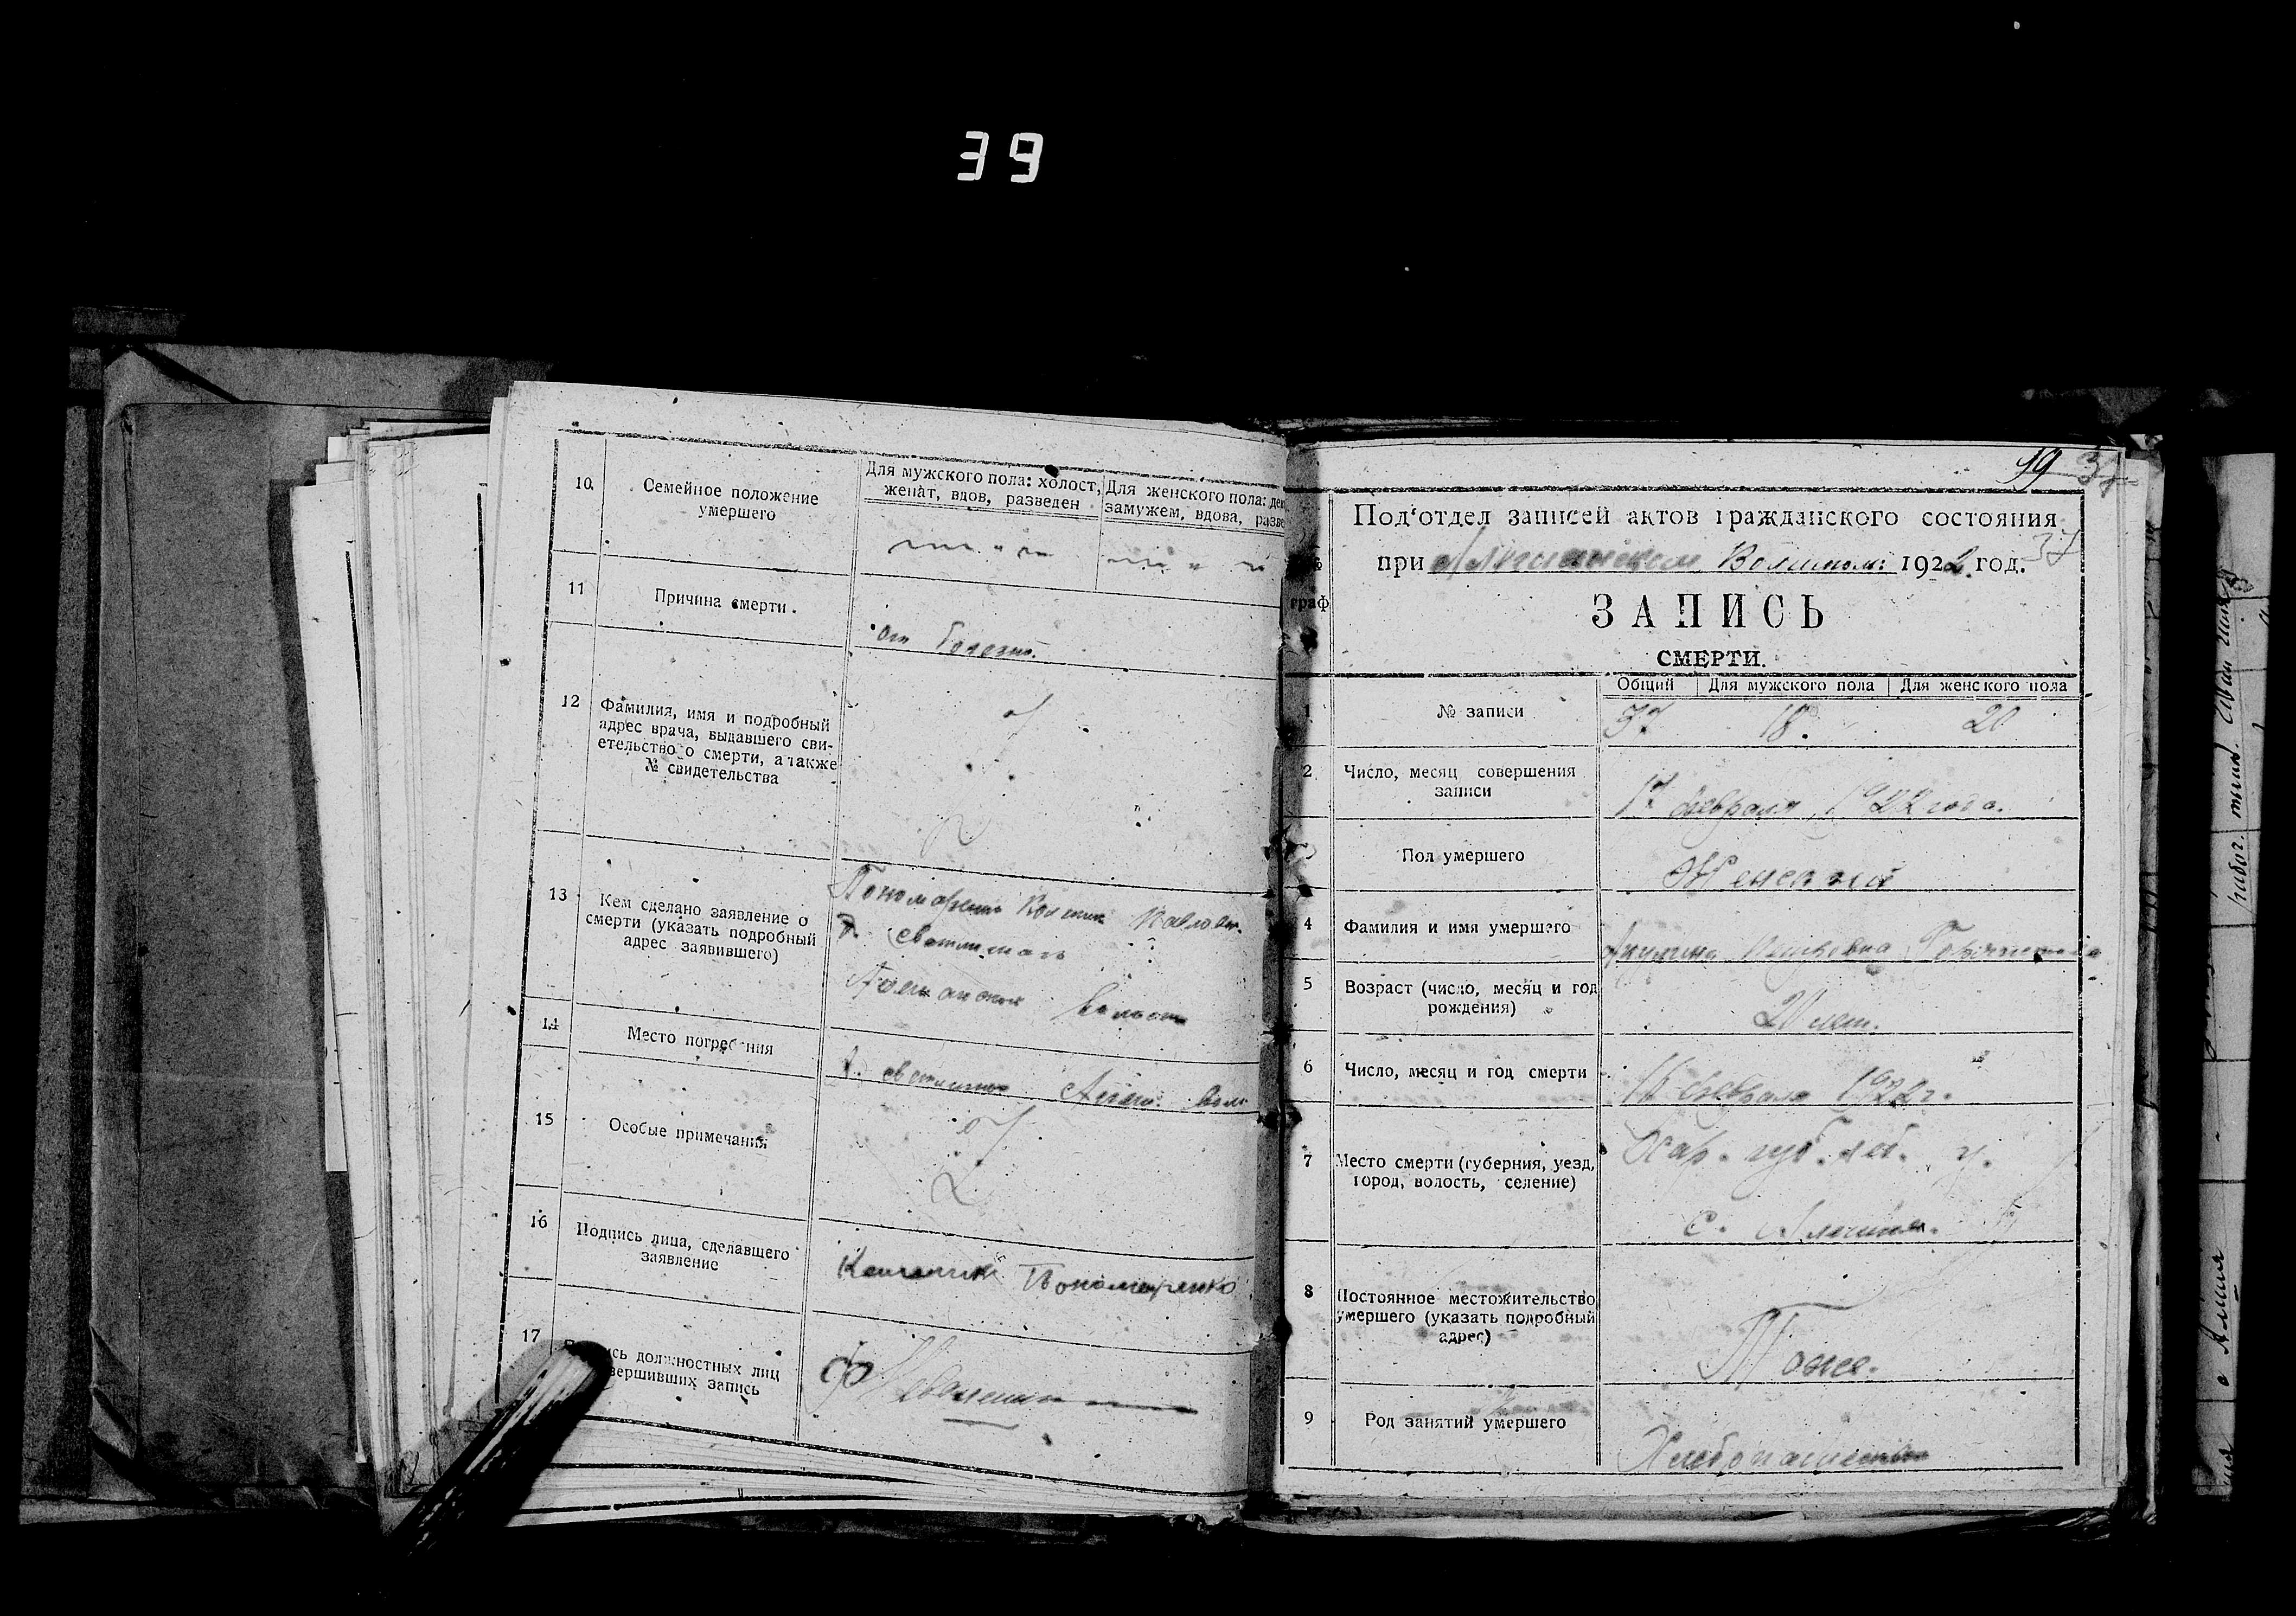 39
10.
Семейное положение
умершего
Для мужского пола: холост,
женат, вдов, разведен
Для женского пола: де
замужем, вдова, разве
11
Причина смерти.
От болезни.
12
Фамилия, имя и подробный
адрес врача, выдавшего сви-
етельство о смерти, а также
№ свидетельства
13
Кем сделано заявление о
смерти (указать подробный
адрес заявившего)
Пономаренко Павлов.
волости
14
Место погребения
15
Особые примечания
16
Подпись лица, сделавшего
заявление
Пономаренко
17
ись должностных лиц
вершивших запись
19 37
Под'отдел записей актов гражданского состояния
при Волисполк: 1922 год. 37
граф
ЗАПИСЬ
СМЕРТИ.
Общий Для мужского пола Для женского пола
1
№ записи
37 18. 20
2
Число, месяц совершения
записи
17 февраля 1922 года.
3
Пол умершего
Женский
4
Фамилия и имя умершего
Акулина
5
Возраст (число, месяц и год
рождения)
20 лет.
6
Число, месяц и год смерти
16 февраля 1922 г.
7
Место смерти (губерния, уезд,
город, волость, селение)
Хар. губ. Леб. у.
с.
8
Постоянное местожительство
умершего (указать подробный
адрес)
Тоже.
9
Род занятий умершего
Хлебопашество